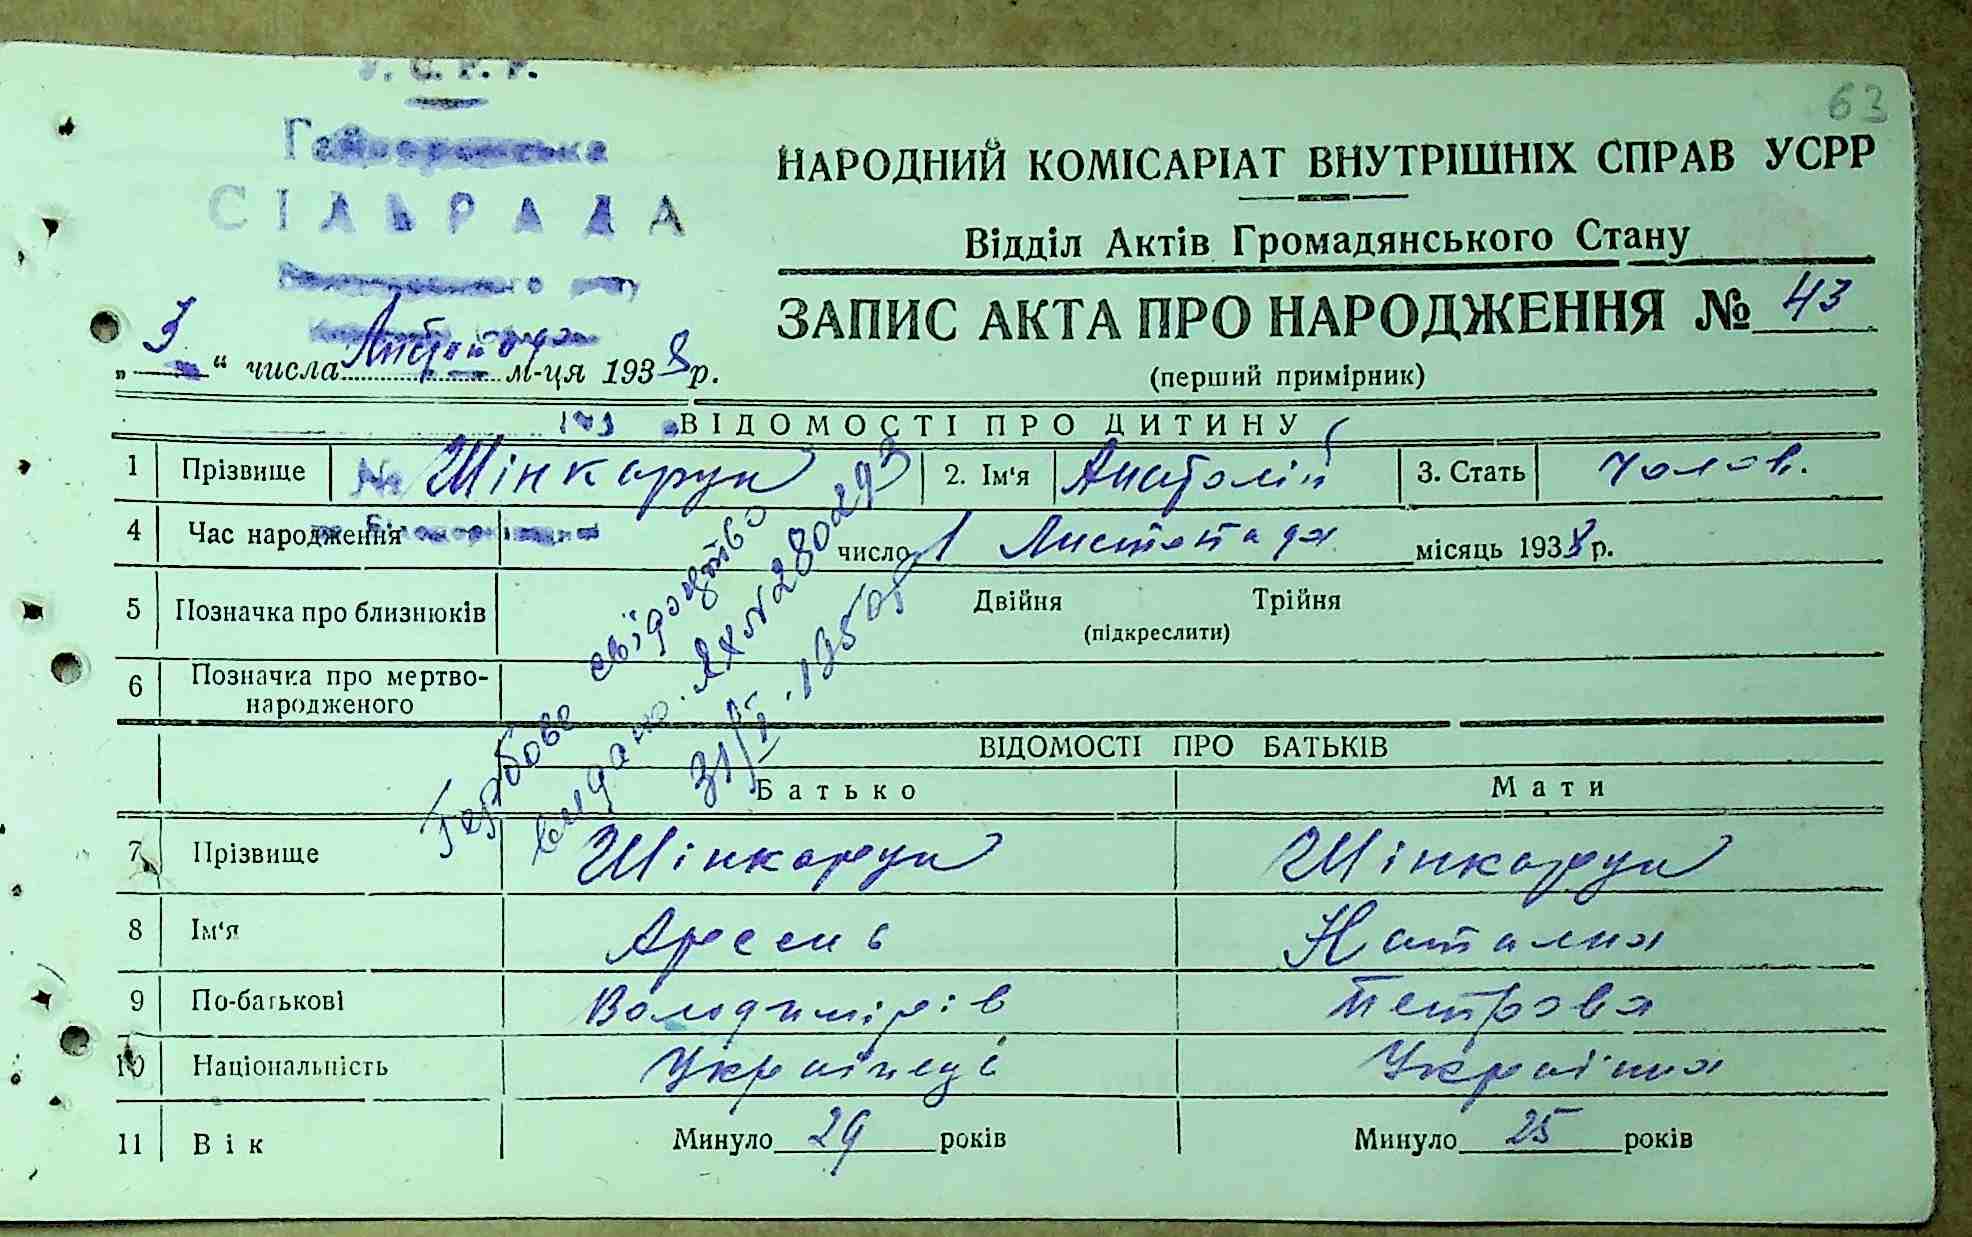 У. С. Р. Р.
63
СІЛЬРАДА
НАРОДНИЙ КОМІСАРІАТ ВНУТРІШНІХ СПРАВ УСРР
Відділ Актів Громадянського Стану
ЗАПИС АКТА ПРО НАРОДЖЕННЯ № 43
(перший примірник)
„ 3 “ числа Листопада м-ця 1938 р.
ВІДОМОСТІ ПРО ДИТИНУ
1 Прізвище Шінкарук 2. Ім'я Анатолій 3. Стать чолов.
4 Час народження число 1 Листопада місяць 1938 р.
5 Позначка про близнюків Двійня Трійня
(підкреслити)
6 Позначка про мертво-
народженого
Гербове свідоцтво
видано
ВІДОМОСТІ ПРО БАТЬКІВ
Батько Мати
7 Прізвище Шінкарук Шінкарук
8 Ім'я Арсень Наталия
9 По-батькові Володимірів Петрова
10 Національність Українець Україника
11 Вік Минуло 29 років Минуло 25 років